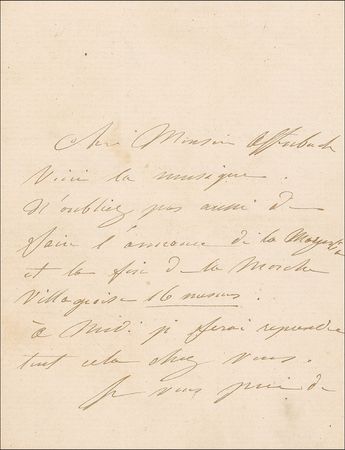 Cher Monsieur Offenbach
Voici la musique.
N'oubliez pas aussi de
faire l'annonce de la
et la fin de la Marche
Villageoise 16 mesures.
à Midi je ferai reprendre
tout cela chez vous.
Je vous prie de